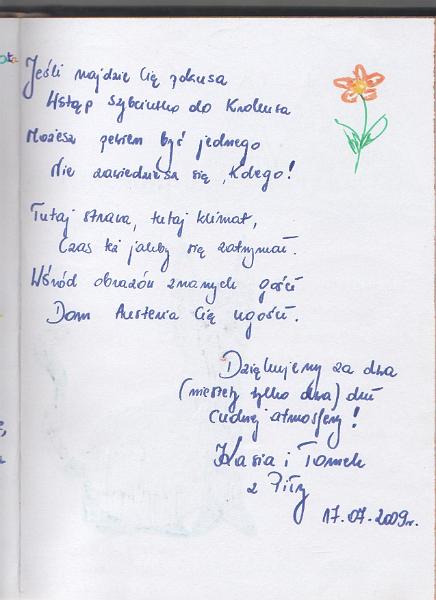 Jeśli najdzie Cię pokusa
Wstąp szybciutko do Krokusa
Możesz pewien być jednego
Nie zawiedziesz się, Kolego!
Tutaj strawa, tutaj klimat,
Czas też jakby się zatrzymał.
Wśród obrazów znanych gości
Dom Austeria Cię ugości.
Dziękujemy za dwa
(niestety tylko dwa) dni
cudnej atmosfery!
Kasia i Tomek
z Piły
17.07.2009r.